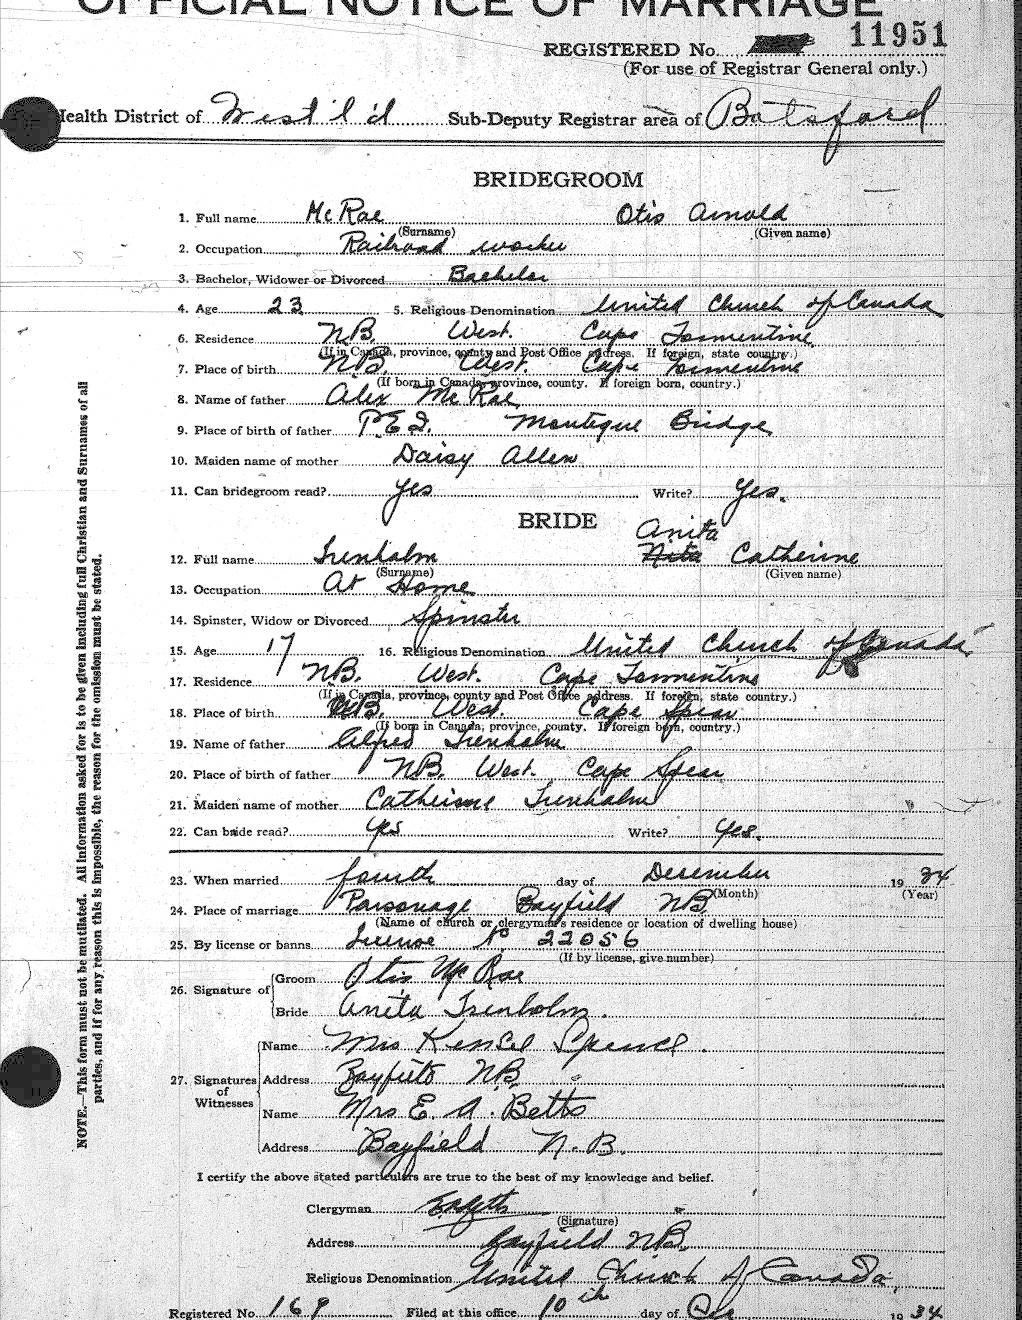 OFFICIAL NOTICE OF MARRIAGE
REGISTERED No. 11951
(For use of Registrar General only.)
Health District of West'l'd Sub-Deputy Registrar area of Botsford
BRIDEGROOM
1. Full name McRae Otis Arnold
(Surname) (Given name)
2. Occupation Railroad worker
3. Bachelor, Widower or Divorced Bachelor
4. Age 23 5. Religious Denomination United Church of Canada
6. Residence NB. West. Cape Tormentine
(If in Canada, province, county and Post Office address. If foreign, state country.)
7. Place of birth NB. West. Cape Tormentine
(If born in Canada, province, county. If foreign born, country.)
8. Name of father Alex McRae
9. Place of birth of father P.E.I. Monteque Bridge
10. Maiden name of mother Daisy Allen
11. Can bridegroom read? yes Write? Yes.
BRIDE
Anita
12. Full name Trenholm Nita Catherine
(Surname) (Given name)
13. Occupation At Home
14. Spinster, Widow or Divorced Spinster
15. Age 17 16. Religious Denomination United Church of Canada
17. Residence NB. West. Cape Tormentine
(If in Canada, province, county and Post Office address. If foreign, state country.)
18. Place of birth NB. West. Cape Spear
(If born in Canada, province, county. If foreign born, country.)
19. Name of father Alfred Trenholm
20. Place of birth of father NB. West. Cape Spear
21. Maiden name of mother Catherine Trenholm
22. Can bride read? yes Write? Yes.
23. When married fourth day of December 1934
(Month) (Year)
24. Place of marriage Parsonage Bayfield NB
(Name of church or clergyman's residence or location of dwelling house)
25. By license or banns License No 22056
(If by license, give number)
26. Signature of Groom Otis McRae
Bride Anita Trenholm.
27. Signatures of Witnesses
Name Mrs Kensel Spence.
Address Bayfield NB.
Name Mrs E. A. Betts
Address Bayfield N.B.
I certify the above stated particulars are true to the best of my knowledge and belief.
Clergyman EABetts
(Signature)
Address Bayfield NB.
Religious Denomination United Church of Canada,
Registered No. 169 Filed at this office 10th day of Dec 1934
NOTE.—This form must not be mutilated. All information asked for is to be given including full Christian and Surnames of all
parties, and if for any reason this is impossible, the reason for the omission must be stated.